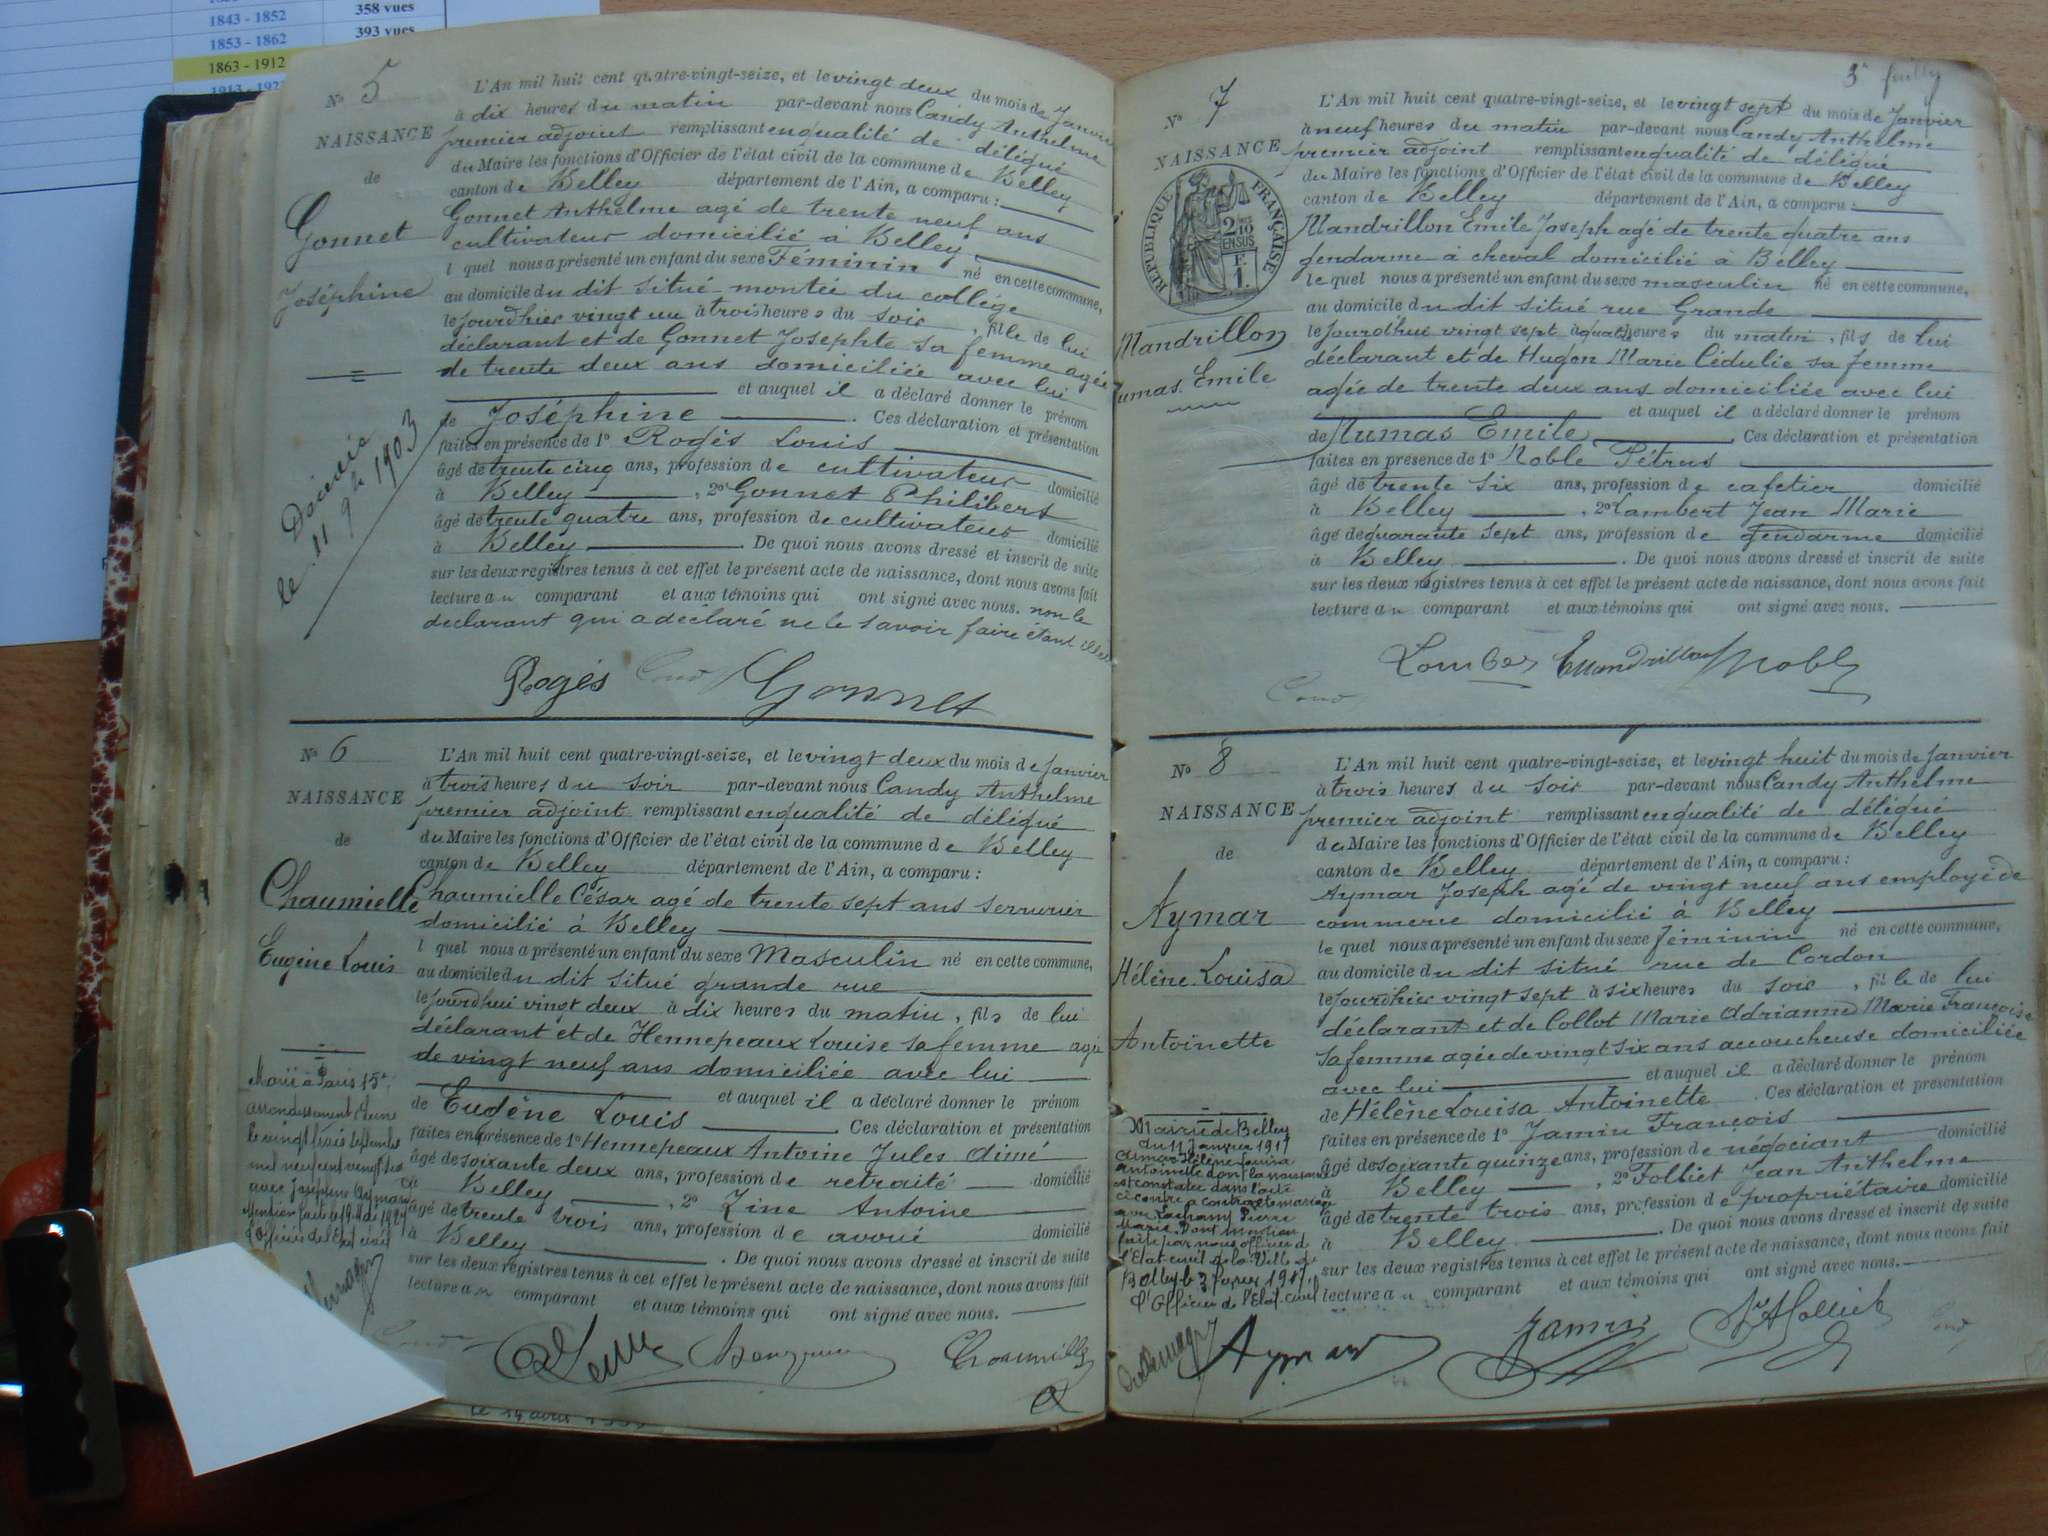 1843 - 1852 358 vues
1853 - 1862 393 vues
1863 - 1912
N° 5
NAISSANCE
de
Gonnet
Joséphine
Décédée
le 11 9bre 1903
L'An mil huit cent quatre-vingt-seize, et le vingt deux du mois de Janvier
à dix heures du matin par-devant nous Candy Anthelme
premier adjoint remplissant en qualité de délégué
du Maire les fonctions d'Officier de l'état civil de la commune de Belley
canton de Belley département de l'Ain, a comparu :
Gonnet Anthelme agé de trente neuf ans
cultivateur domicilié à Belley
l quel nous a présenté un enfant du sexe Féminin né en cette commune,
au domicile du dit situé montée du collège
le jourdhier vingt un à trois heures du soir, fille de lui
déclarant et de Gonnet Josephte sa femme agée
de trente deux ans domiciliée avec lui
et auquel il a déclaré donner le prénom
de Joséphine. Ces déclaration et présentation
faites en présence de 1° Rogès Louis
âgé de trente cinq ans, profession de cultivateur domicilié
à Belley, 2° Gonnet Philibert
âgé de trente quatre ans, profession de cultivateur domicilié
à Belley. De quoi nous avons dressé et inscrit de suite
sur les deux registres tenus à cet effet le présent acte de naissance, dont nous avons fait
lecture au comparant et aux témoins qui ont signé avec nous. non le
declarant qui a déclaré ne le savoir faire étant
Rogès Gonnet
N° 6
NAISSANCE
de
Chaumielle
Eugène Louis
Marié à Paris 15e
arrondissement, Seine
le vingt trois septembre
mil neuf cent vingt
avec Josephine
Mention faite le 19 Mai 1927
l'Officier de l'Etat civil
L'An mil huit cent quatre-vingt-seize, et le vingt deux du mois de Janvier
à trois heures du soir par-devant nous Candy Anthelme
premier adjoint remplissant en qualité de délégué
du Maire les fonctions d'Officier de l'état civil de la commune de Belley
canton de Belley département de l'Ain, a comparu :
Chaumielle César agé de trente sept ans serrurier
domicilié à Belley
l quel nous a présenté un enfant du sexe Masculin né en cette commune,
au domicile du dit situé grande rue
le jourdhui vingt deux à dix heures du matin, fils de lui
déclarant et de Hennepeaux Louise sa femme agée
de vingt neuf ans domiciliée avec lui
et auquel il a déclaré donner le prénom
de Eugène Louis. Ces déclaration et présentation
faites en présence de 1° Hennepeaux Antoine Jules Aimé
âgé de soixante deux ans, profession de retraité domicilié
à Belley, 2° Zine Antoine
âgé de trente trois ans, profession de avoué domicilié
à Belley. De quoi nous avons dressé et inscrit de suite
sur les deux registres tenus à cet effet le présent acte de naissance, dont nous avons fait
lecture au comparant et aux témoins qui ont signé avec nous.
Chaumielle
3e feuillet
N° 7
NAISSANCE
RÉPUBLIQUE FRANÇAISE
2/10 EN SUS
F. 1.
Mandrillon
Numas Emile
L'An mil huit cent quatre-vingt-seize, et le vingt sept du mois de Janvier
à neuf heures du matin par-devant nous Candy Anthelme
premier adjoint remplissant en qualité de délégué
du Maire les fonctions d'Officier de l'état civil de la commune de Belley
canton de Belley département de l'Ain, a comparu :
Mandrillon Emile Joseph agé de trente quatre ans
gendarme à cheval domicilié à Belley
le quel nous a présenté un enfant du sexe masculin né en cette commune,
au domicile du dit situé rue Grande
le jourdhui vingt sept à quatre heures du matin, fils de lui
déclarant et de Hugon Marie Cédulie sa femme
agée de trente deux ans domiciliée avec lui
et auquel il a déclaré donner le prénom
de Numas Emile. Ces déclaration et présentation
faites en présence de 1° Noble Pétrus
âgé de trente six ans, profession de cafetier domicilié
à Belley, 2° Lambert Jean Marie
âgé de quarante sept ans, profession de gendarme domicilié
à Belley. De quoi nous avons dressé et inscrit de suite
sur les deux registres tenus à cet effet le présent acte de naissance, dont nous avons fait
lecture au comparant et aux témoins qui ont signé avec nous.
Lambert Mandrillon Noble
N° 8
NAISSANCE
de
Aymar
Hélène Louisa
Antoinette
Mairie de Belley
du 11 Janvier 1917
Aimar Hélène Louisa
Antoinette dont la naissance
est constatée dans l'acte
ci contre a contracté mariage
avec Pierre
Marie. Dont mention
faite par nous officier de
l'Etat civil de la Ville de
Belley le 3 février 1917.
L'Officier de l'Etat civil
L'An mil huit cent quatre-vingt-seize, et le vingt huit du mois de Janvier
à trois heures du soir par-devant nous Candy Anthelme
premier adjoint remplissant en qualité de délégué
du Maire les fonctions d'Officier de l'état civil de la commune de Belley
canton de Belley département de l'Ain, a comparu :
Aymar Joseph agé de vingt neuf ans employé de
commerce domicilié à Belley
le quel nous a présenté un enfant du sexe Féminin né en cette commune,
au domicile du dit situé rue de Cordon
le jourdhier vingt sept à six heures du soir, fille de lui
déclarant et de Collot Marie Adrianne Marie Françoise
sa femme agée de vingt six ans accoucheuse domiciliée
avec lui et auquel il a déclaré donner le prénom
de Hélène Louisa Antoinette. Ces déclaration et présentation
faites en présence de 1° Jamin François
âgé de soixante quinze ans, profession de négociant domicilié
à Belley, 2° Folliet Jean Anthelme
âgé de trente trois ans, profession de propriétaire domicilié
à Belley. De quoi nous avons dressé et inscrit de suite
sur les deux registres tenus à cet effet le présent acte de naissance, dont nous avons fait
lecture au comparant et aux témoins qui ont signé avec nous.
Aymar Jamin Folliet